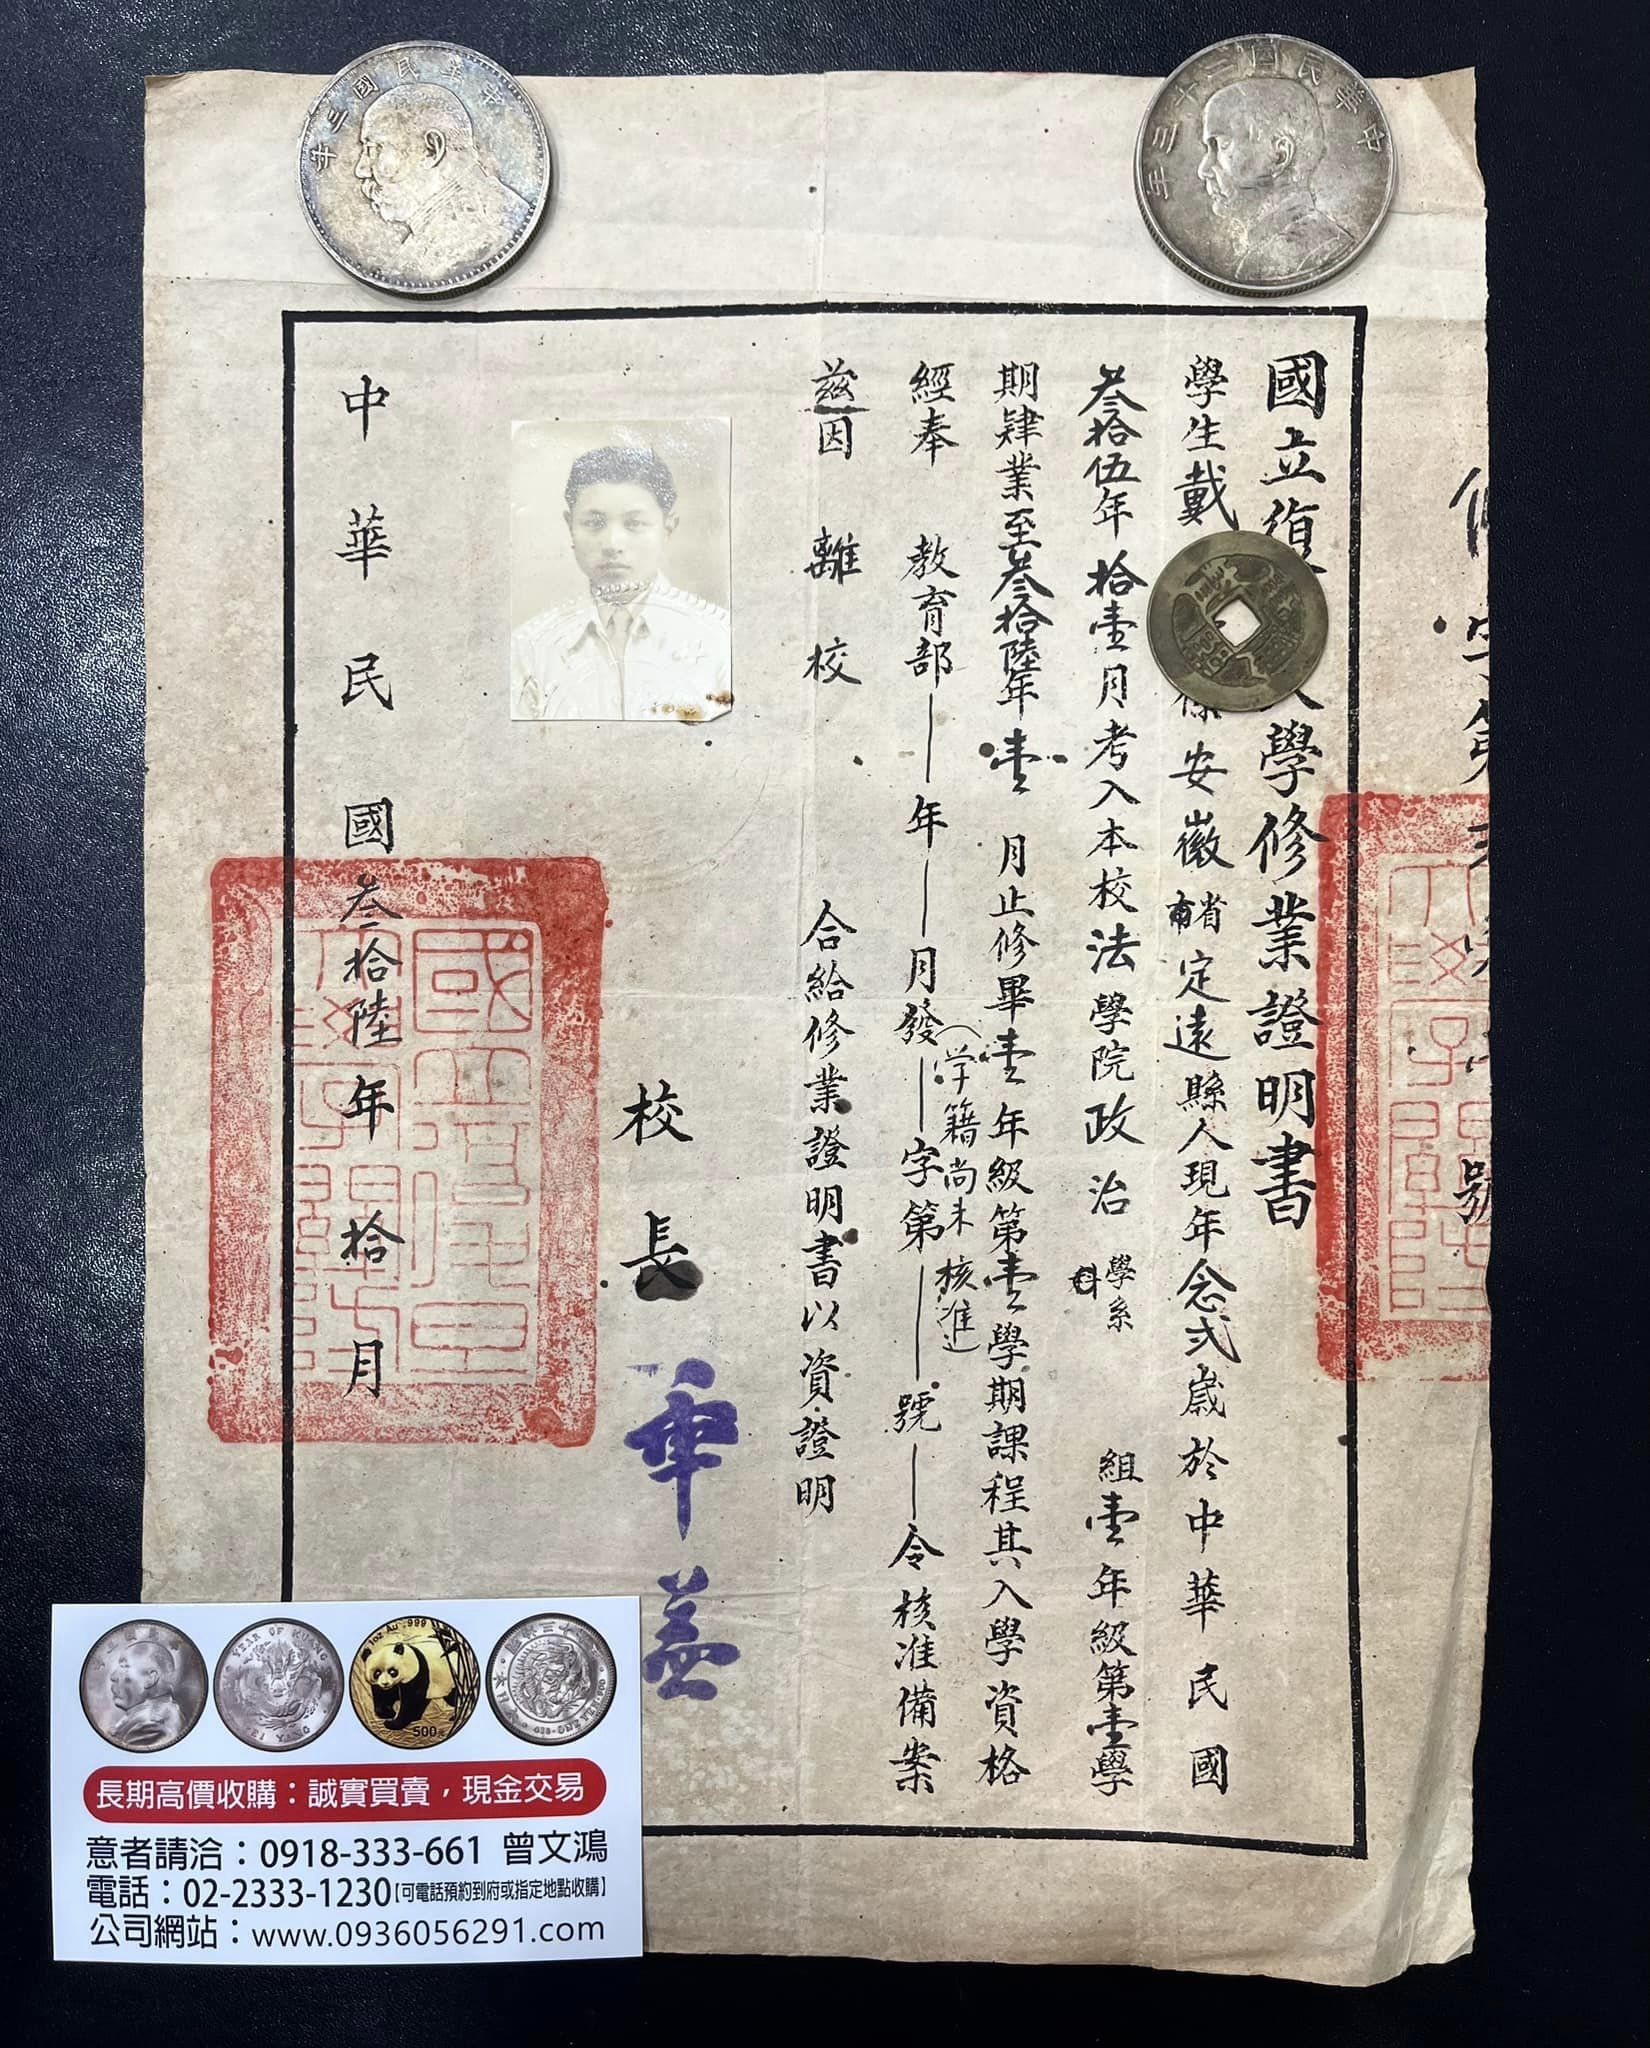 中華民國三年
中華民國二十三年
國立復學修業證明書
學生戴安徽省市定遠縣人現年念弍歲於中華民國
叁拾伍年拾壹月考入本校法學院政治學系科組壹年級第壹學
期肄業至叁拾陸年壹月止修畢壹年級第壹學期課程其入學資格
經奉教育部——年——月發——字第——號——令核准備案
(学籍尚未核准
茲因離校合給修業證明書以資證明
校長章益
中華民國叁拾陸年拾月
第
號
YEAR OF KUANG
1oz Au .999
500元
長期高價收購：誠實買賣，現金交易
意者請洽：0918-333-661 曾文鴻
電話：02-2333-1230【可電話預約到府或指定地點收購】
公司網站：www.0936056291.com